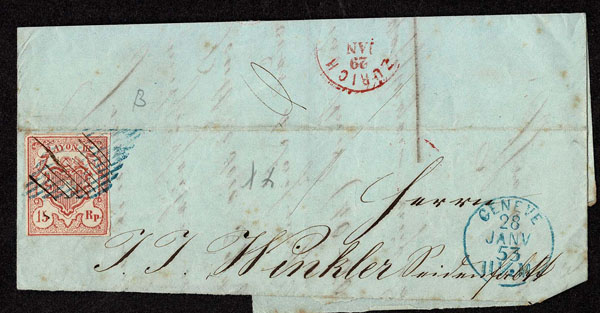 ZURICH
29
JAN
B
RAYON III
15 Rp
17
Herrn
J. J. Winkler Seidenfabkt
GENÈVE
28
JANV
53